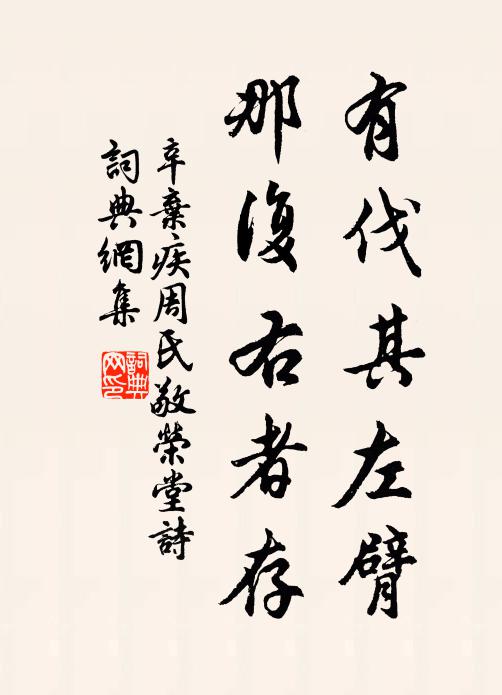 有伐其左臂
那復右者存
辛棄疾周氏敬榮堂詩
詞典網集
詞典網印